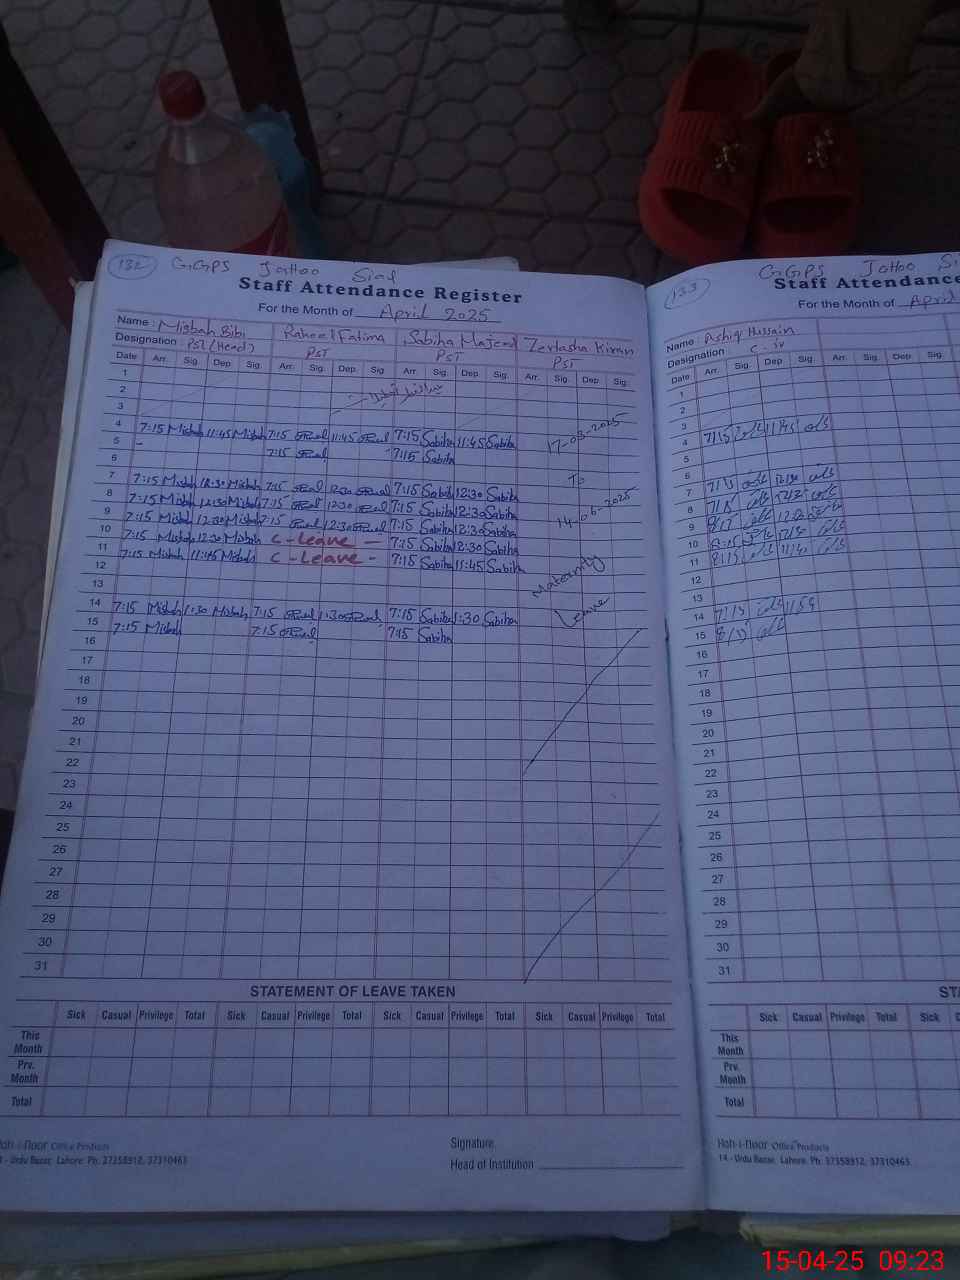 132 GGPS Jattoo Sial
Staff Attendance Register
For the Month of April 2025
Name: Misbah Bibi Raheel Fatima Sabiha Majeed Zertasha Kiran
Designation: PST (Head) PST PST PST
Date Arr. Sig. Dep. Sig. Arr. Sig. Dep. Sig. Arr. Sig. Dep. Sig. Arr. Sig. Dep. Sig.
1
2
3
4 7:15 Misbah 11:45 Misbah 7:15 11:45 7:15 Sabiha 11:45 Sabiha 17-03-2025
5 - 7:15 7:15 Sabiha
6 To
7 7:15 Misbah 12:30 Misbah 7:15 12:30 7:15 Sabiha 12:30 Sabiha
8 7:15 Misbah 12:30 Misbah 7:15 12:30 7:15 Sabiha 12:30 Sabiha
9 7:15 Misbah 12:30 Misbah 7:15 12:30 7:15 Sabiha 12:30 Sabiha
10 7:15 Misbah 12:30 Misbah C-Leave - 7:15 Sabiha 12:30 Sabiha
11 7:15 Misbah 11:45 Misbah C-Leave - 7:15 Sabiha 11:45 Sabiha
12 Maternity
13 Leave
14 7:15 Misbah 1:30 Misbah 7:15 1:30 7:15 Sabiha 1:30 Sabiha
15 7:15 Misbah 7:15 7:15 Sabiha
16
17
18
19
20
21
22
23
24
25
26
27
28
29
30
31
STATEMENT OF LEAVE TAKEN
Sick Casual Privilege Total Sick Casual Privilege Total Sick Casual Privilege Total Sick Casual Privilege Total
This Month
Prv. Month
Total
Office Products
Urdu Bazar, Lahore. Ph: 37358912, 37310463
Signature
Head of Institution
133 GGPS Jattoo
Staff Attendance
For the Month of April
Name: Ashiq Hussain
Designation:
Date Arr. Sig. Dep. Sig. Arr. Sig. Dep. Sig.
1
2
3
4
5
6
7
8
9
10
11
12
13
14
15
16
17
18
19
20
21
22
23
24
25
26
27
28
29
30
31
Sick Casual Privilege Total Sick
This Month
Prv. Month
Total
Koh-i-noor Office Products
14 - Urdu Bazar, Lahore. Ph: 37358912, 37310463
15-04-25 09:23